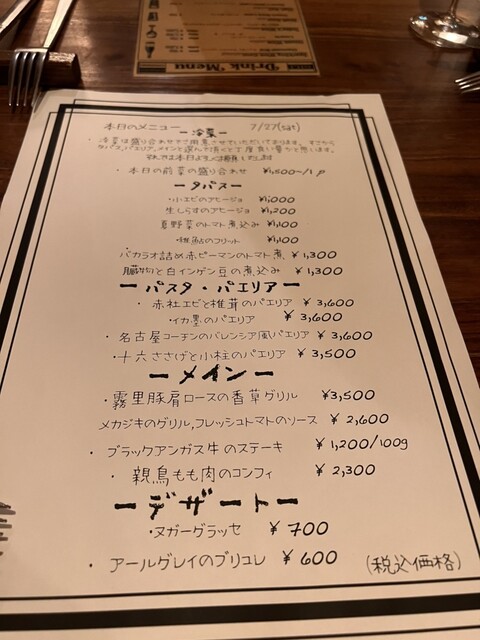 Drink Menu
本日のメニュー 7/27(sat)
ー冷菜ー
・冷菜は盛り合わせでご用意させていただいております。
タパス、パエリア、メインと選んで頂くと丁度良い量かと思います。
・本日の前菜の盛り合わせ ¥1,500~/1P
ータパスー
・小エビのアヒージョ ¥1,000
生しらすのアヒージョ ¥1,200
夏野菜のトマト煮込み ¥1,100
・稚鮎のフリット ¥1,100
バカラオ詰め赤ピーマンのトマト煮 ¥1,300
と白インゲン豆の煮込み ¥1,300
ーパスタ・パエリアー
・赤社エビと椎茸のパエリア ¥3,600
・イカ墨のパエリア ¥3,600
・名古屋コーチンのバレンシア風パエリア ¥3,600
・十六ささげと小柱のパエリア ¥3,500
ーメインー
・霧里豚肩ロースの香草グリル ¥3,500
メカジキのグリル,フレッシュトマトのソース ¥2,600
・ブラックアンガス牛のステーキ ¥1,200/100g
・親鳥もも肉のコンフィ ¥2,300
ーデザートー
・ヌガーグラッセ ¥700
・アールグレイのブリュレ ¥600
(税込価格)